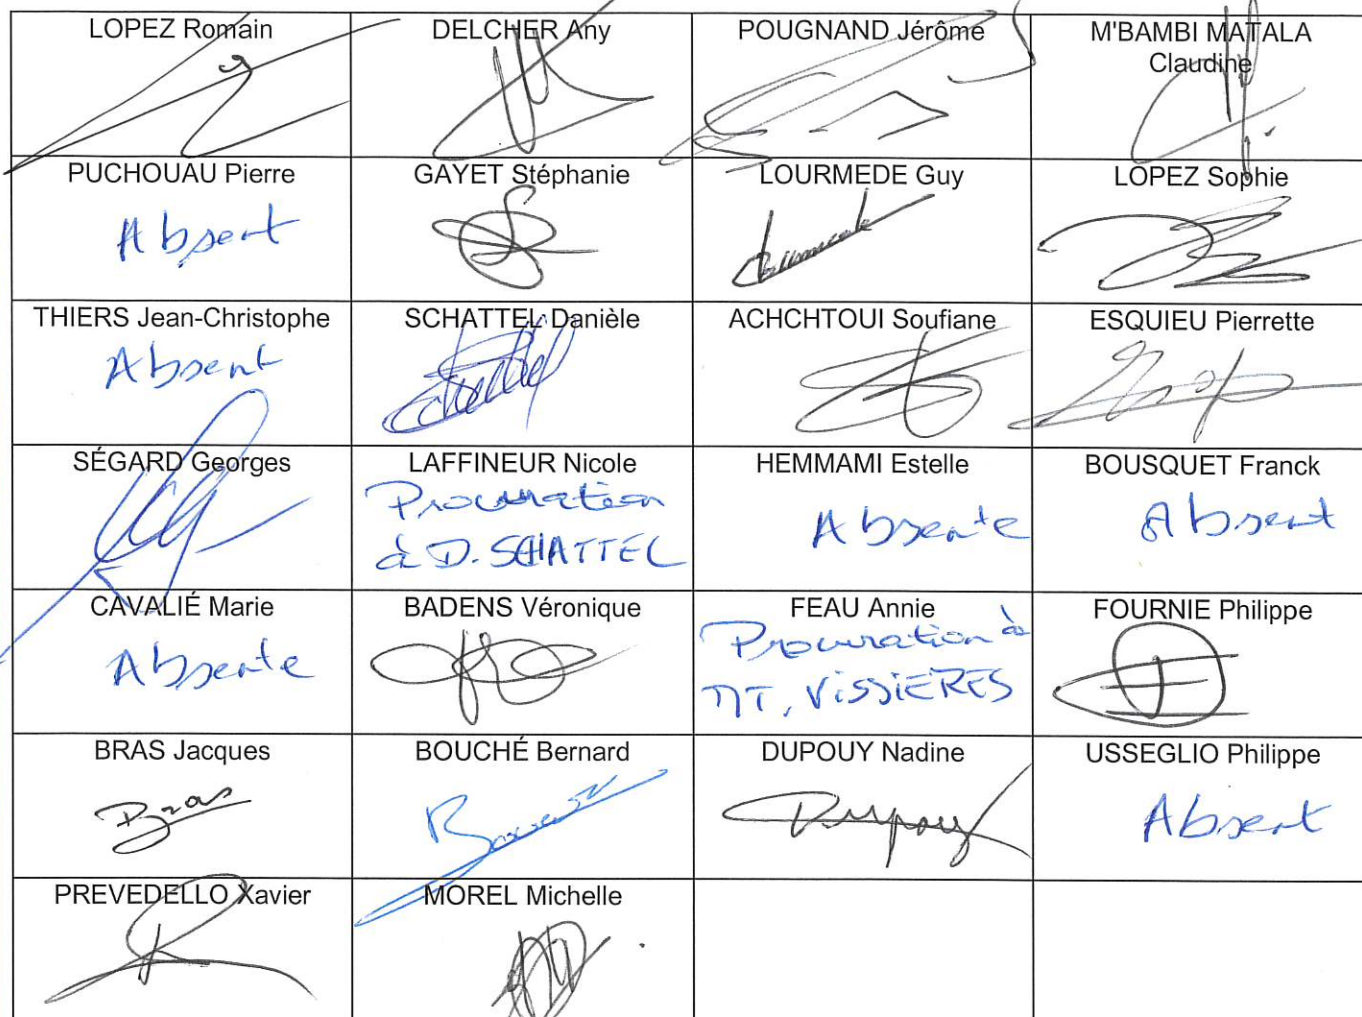 LOPEZ Romain
DELCHER Any
POUGNAND Jérôme
M'BAMBI MATALA
Claudine
PUCHOUAU Pierre
Absent
GAYET Stéphanie
LOURMEDE Guy
LOPEZ Sophie
THIERS Jean-Christophe
Absent
SCHATTEL Danièle
ACHCHTOUI Soufiane
ESQUIEU Pierrette
SÉGARD Georges
LAFFINEUR Nicole
Procuration
à D. SCHATTEL
HEMMAMI Estelle
Absente
BOUSQUET Franck
Absent
CAVALIÉ Marie
Absente
BADENS Véronique
FEAU Annie
Procuration à
MT. VISSIERES
FOURNIE Philippe
BRAS Jacques
Bras
BOUCHÉ Bernard
DUPOUY Nadine
Dupouy
USSEGLIO Philippe
Absent
PREVEDELLO Xavier
MOREL Michelle